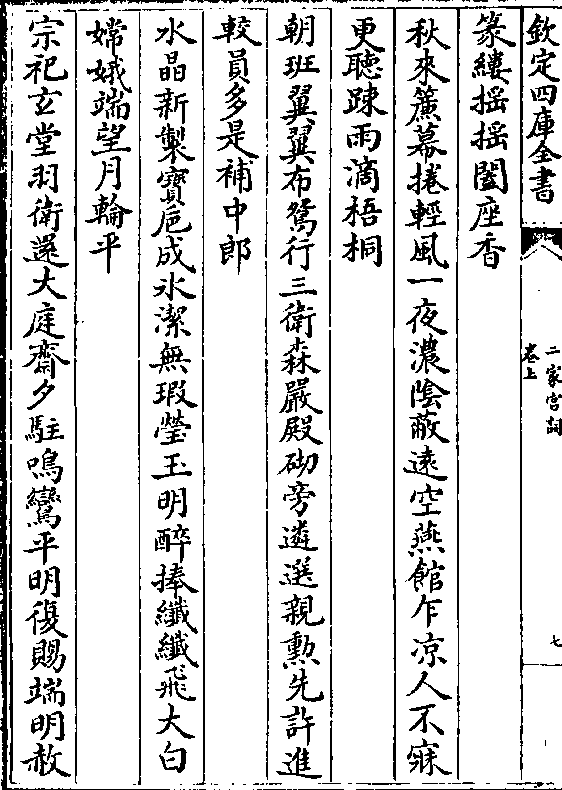 欽定四庫全書
二家宮詞
卷上
七
篆縷揺揺闔座香
秋來簾幕捲輕風一夜濃陰蔽遠空燕館乍凉人不寐
更聽踈雨滴梧桐
朝班翼翼布鴛行三衛森嚴殿砌旁遴選親勲先許進
較員多是補中郎
水晶新製寳巵成氷潔無瑕瑩玉明醉捧纎纎飛大白
嫦娥端望月輪平
宗祀玄堂羽衛還大庭齋夕駐鳴鸞平明復賜端明赦